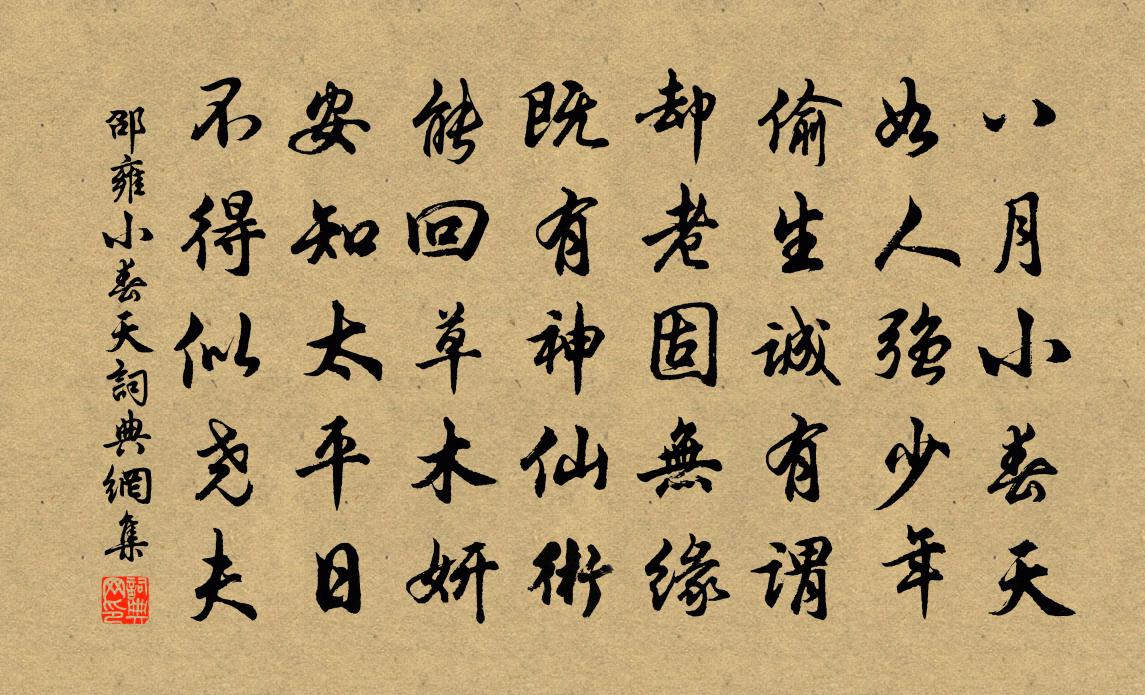 八月小春天
如人強少年
偷生誠有謂
却老固無緣
既有神仙術
能回草木妍
安知太平日
不得似尧夫
邵雍小春天詞典網集
詞典网印